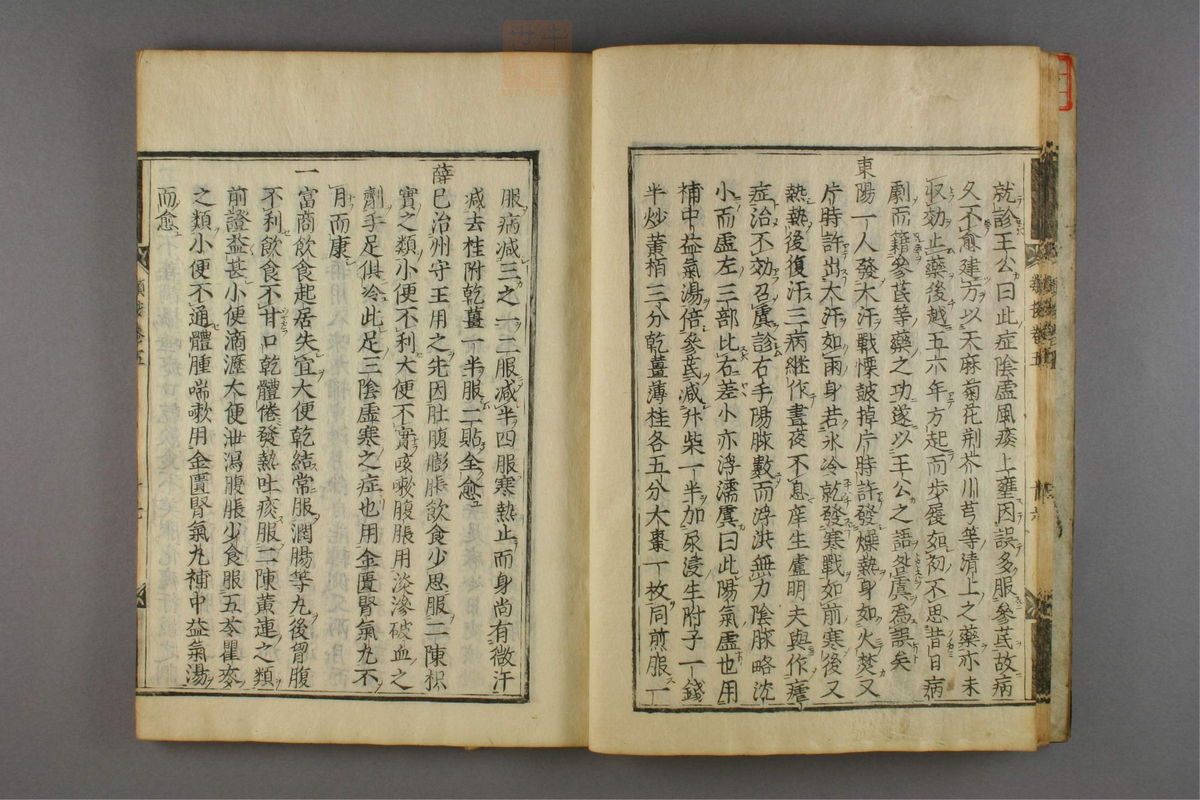 就診王公曰此症陰虛風痰上壅因誤多服參芪故病
久不愈建方以天麻菊花荆芥川芎等清上之藥亦未
収効止藥後越五六年方起而步履如初不思昔日病
劇而籍參芪等藥之功遂以王公之語咎虞為誤矣
東陽一人發大汗戰慄鼓掉片時許發燥熱身如火焚又
片時許出大汗如雨身若氷冷就發寒戰如前寒後又
熱熱後復汗三病継作晝夜不息庠生盧明夫與作瘧
症治不効召虞診右手陽脉數而浮洪無力陰脉略沈
小而虛左三部比右差小亦浮濡虞曰此陽氣虛也用
補中益氣湯倍參芪减升柴一半加尿浸生附子一錢
半炒黄栢三分乾薑薄桂各五分大棗一枚同煎服一
服病减三之一二服减半四服寒熱止而身尚有微汗
减去桂附乾薑一半服二貼全愈
薛巳治州守王用之先因肚腹膨脹飲食少思服二陳枳
實之類小便不利大便不實咳嗽腹脹用淡滲破血之
劑手足俱冷此足三陰虛寒之症也用金匱腎氣丸不
月而康
一富商飲食起居失宜大便乾結常服潤腸等丸後胷腹
不利飲食不甘口乾體倦發熱吐痰服二陳黄連之類
前證益甚小便滴瀝大便泄瀉腹脹少食服五苓瞿麥
之類小便不通體腫喘嗽用金匱腎氣丸補中益氣湯
而愈